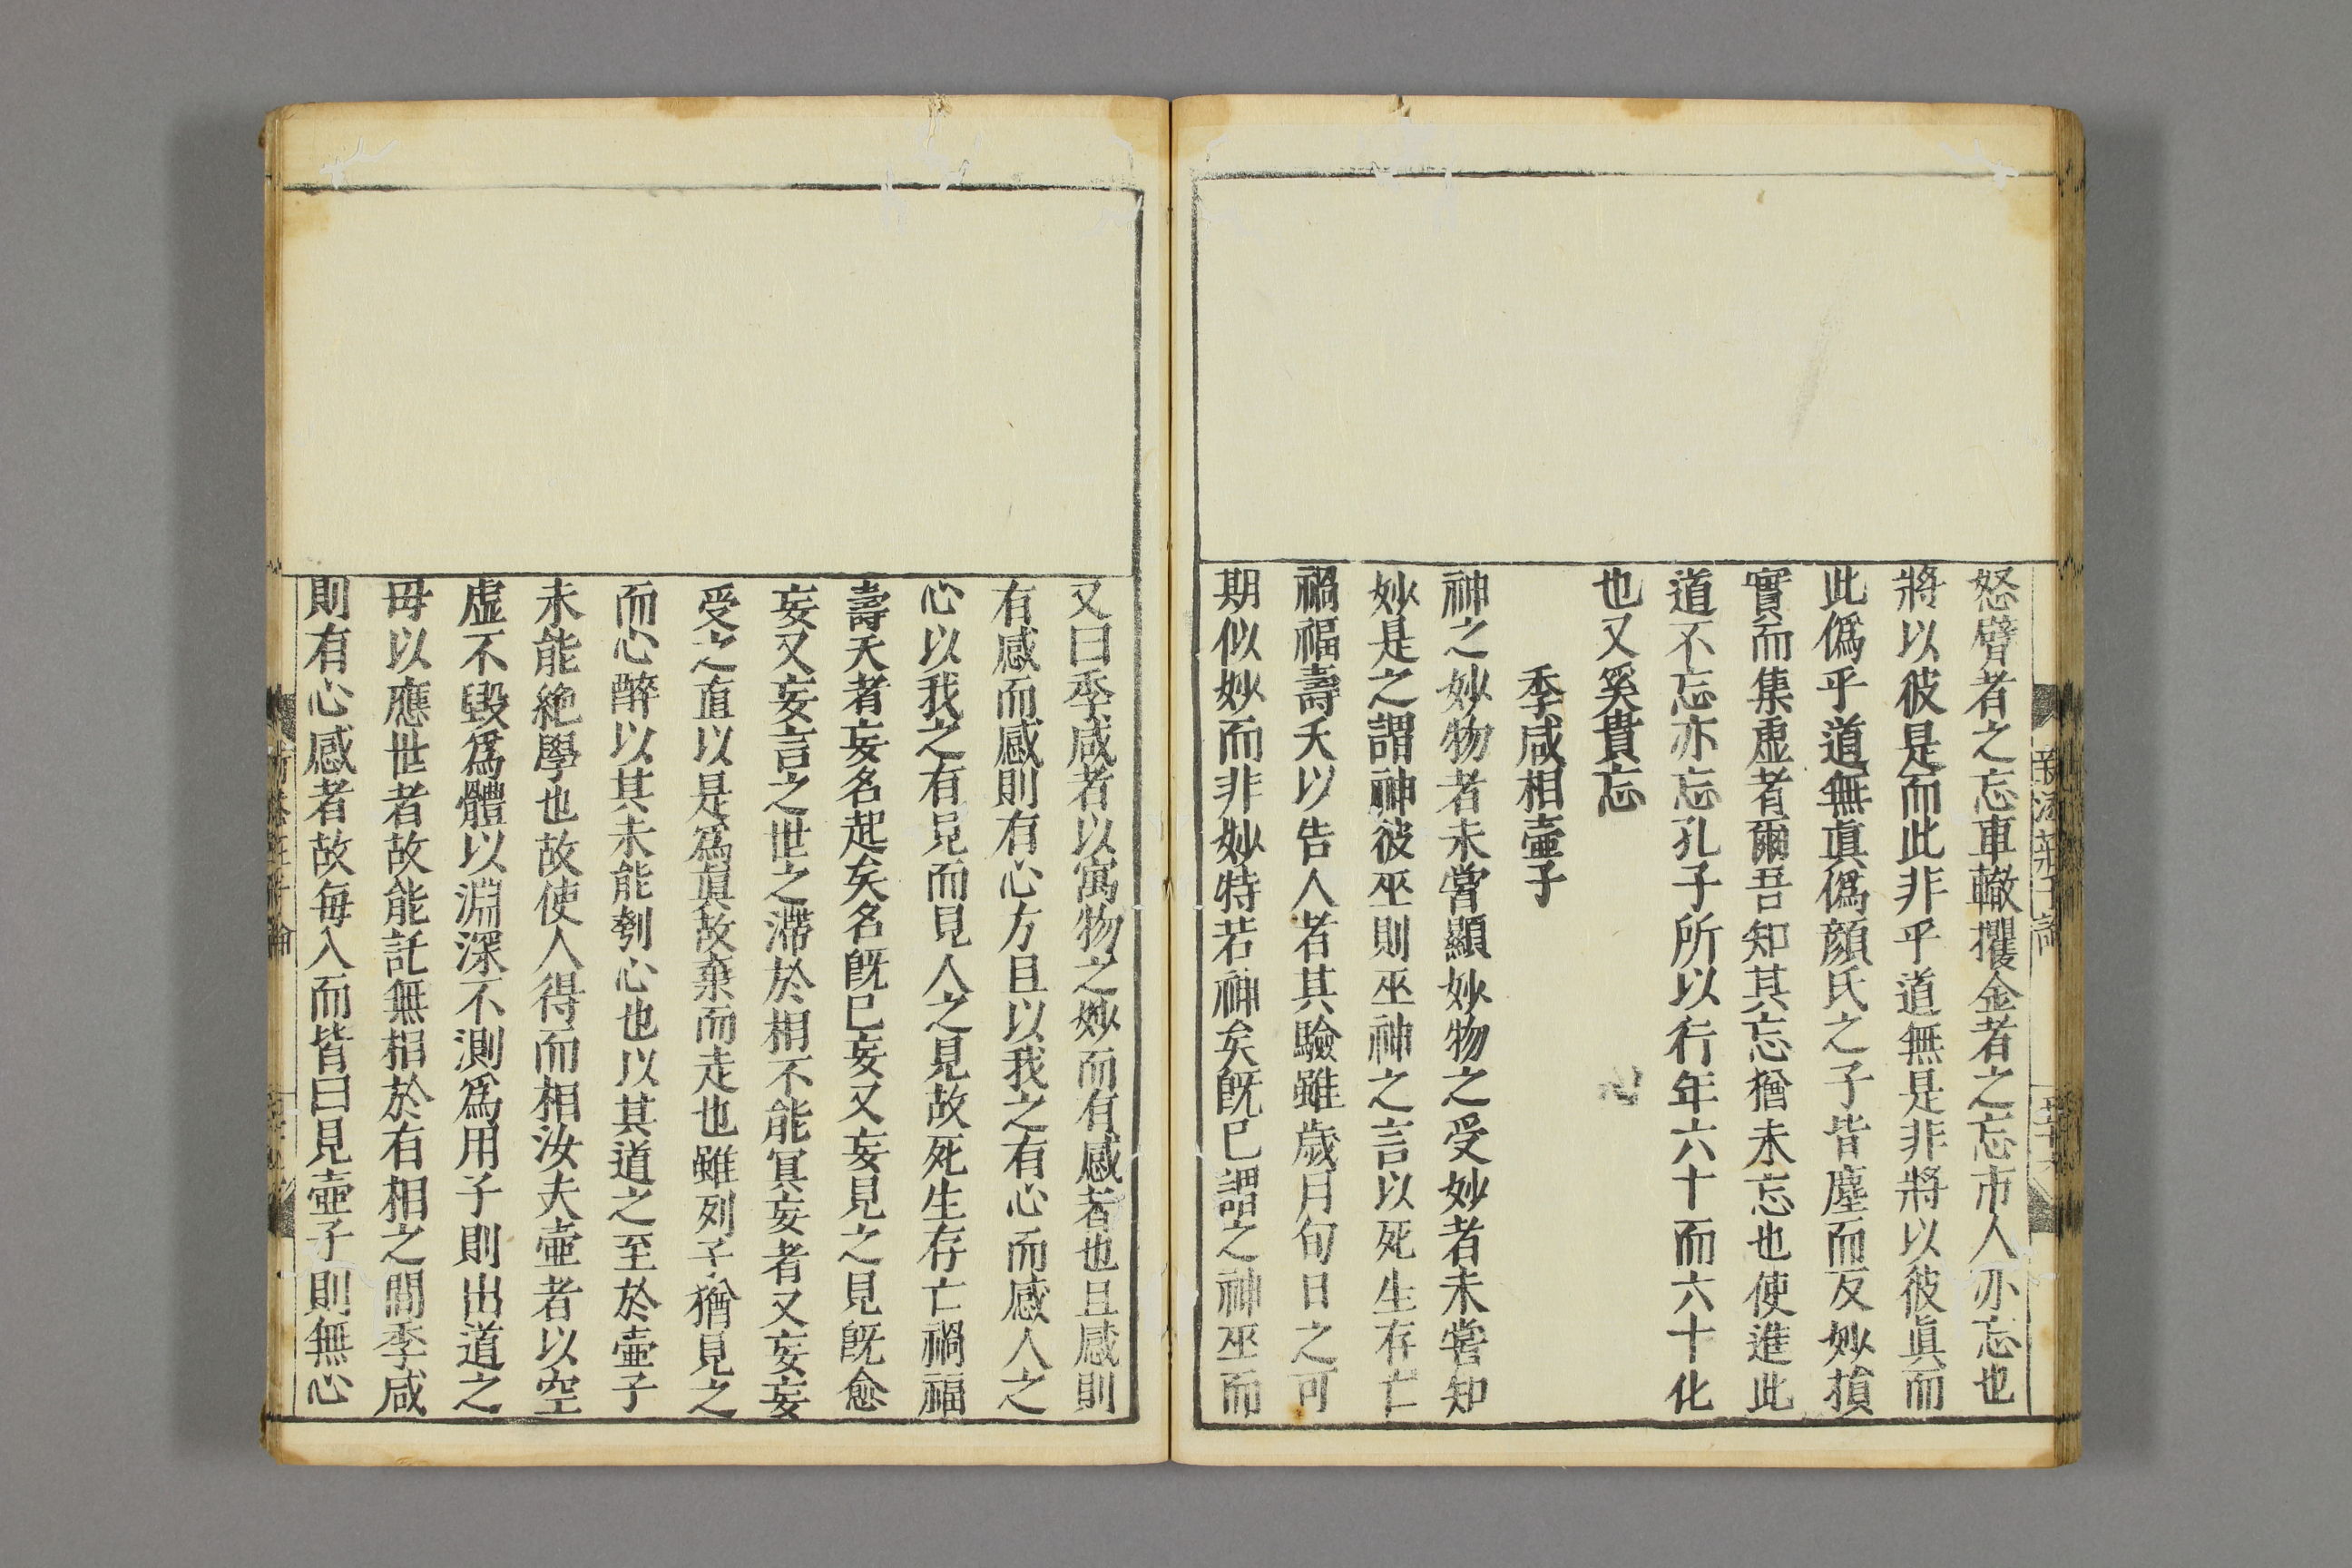 怒臂者之忘車轍攫金者之忘市人亦忘也
將以彼是而此非乎道無是非將以彼眞而
此僞乎道無眞僞顔氏之子皆塵而反妙損
實而集虛者爾吾知其忘猶未忘也使進此
道不忘亦忘孔子所以行年六十而六十化
也又奚貴忘
季咸相壷子
神之妙物者未嘗顯妙物之受妙者未嘗知
妙是之謂神彼巫則巫神之言以死生存亡
禍福壽夭以告人者其驗雖歲月旬日之可
期似妙而非妙特若神矣旣已謂之神巫而
又曰季咸者以寓物之妙而有感者也且感則
有感而感則有心方且以我之有心而感人之
心以我之有見而見人之見故死生存亡禍福
壽夭者妄名起矣名旣已妄又妄見之見旣愈
妄又妄言之世之滯於相不能冥妄者又妄妄
受之直以是爲眞故棄而走也雖列子猶見之
而心醉以其未能刳心也以其道之至於壷子
未能絶學也故使人得而相汝夫壷者以空
虛不毀爲體以淵深不測爲用子則出道之
毋以應世者故能託無相於有相之間季咸
則有心感者故每入而皆曰見壷子則無心